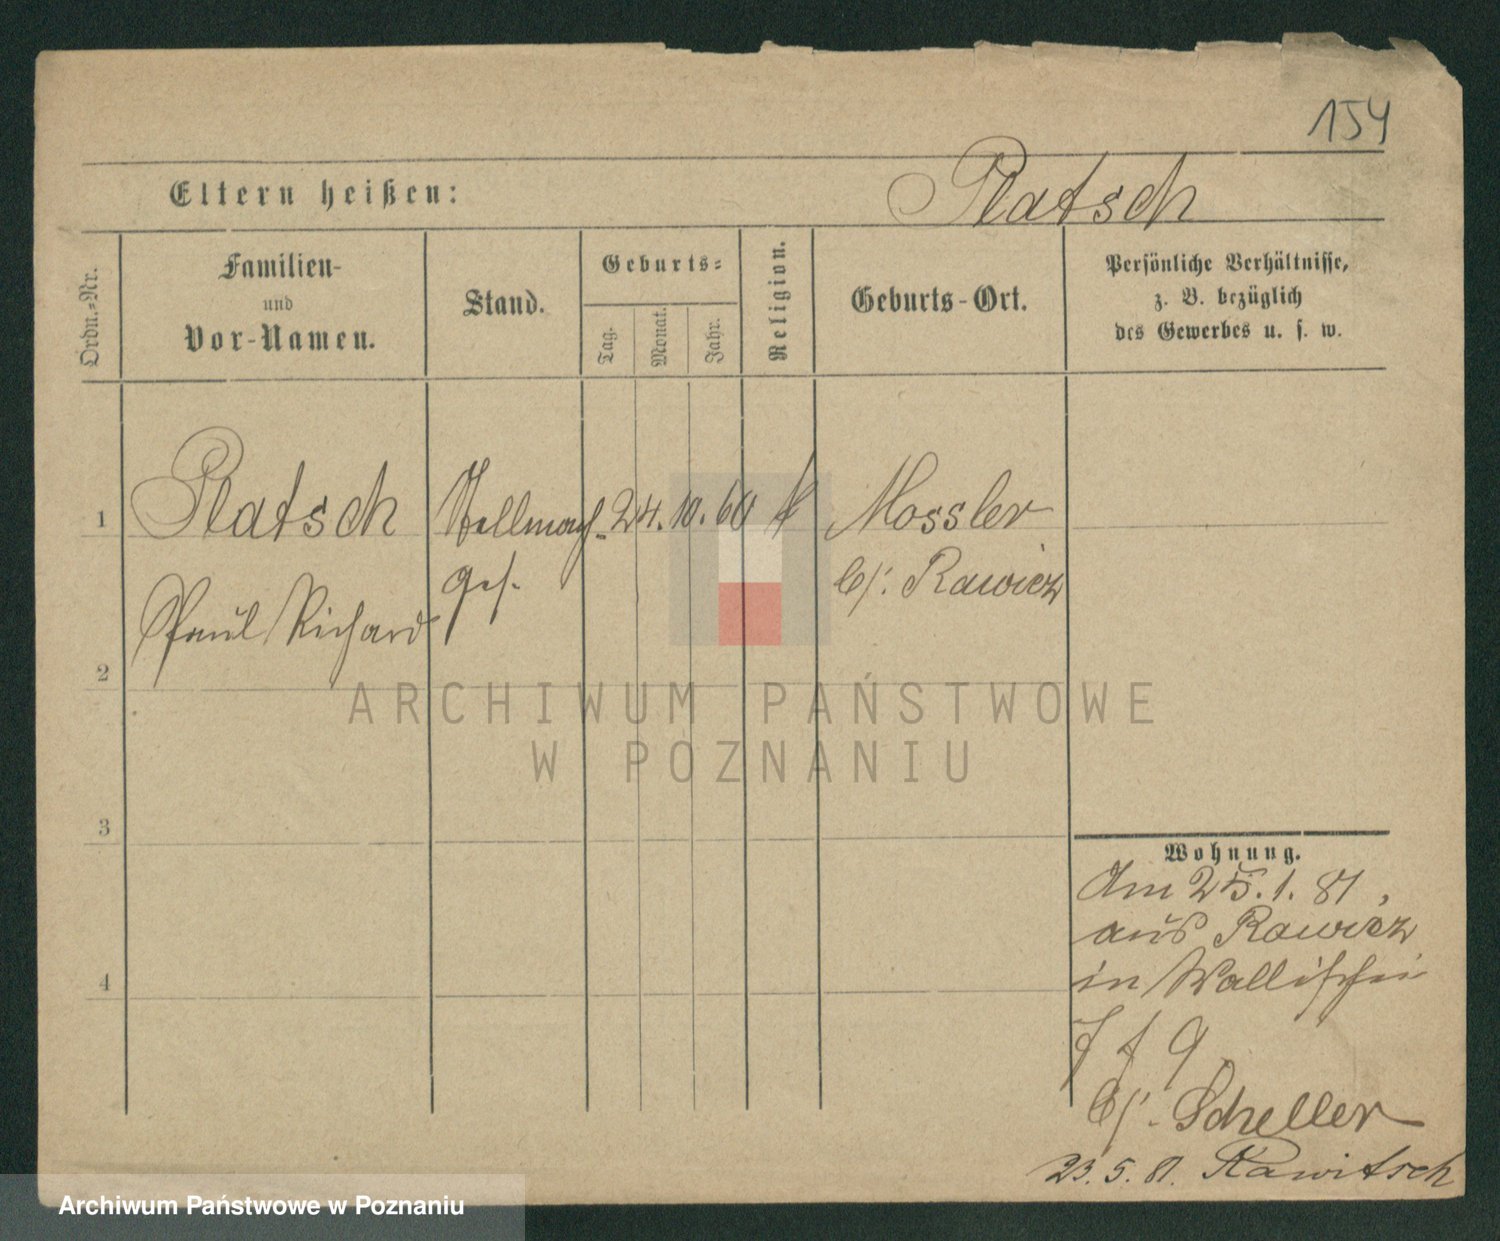 154
Eltern heißen: Platsch
Ordn.-Nr.
Familien-
und
Vor-Namen.
Stand.
Geburts-
Tag.
Monat.
Jahr.
Religion.
Geburts-Ort.
Persönliche Verhältnisse,
z. B. bezüglich
des Gewerbes u. s. w.
1 Platsch Stellmach- 24. 10. 60 k Mossler
ges. b/. Rawicz
Paul Richard
2
3
4
Wohnung.
Am 25.1.81,
aus Rawicz
in Wallischei
b/. Scheller
23.5.81. Rawitsch
ARCHIWUM PAŃSTWOWE
W POZNANIU
Archiwum Państwowe w Poznaniu